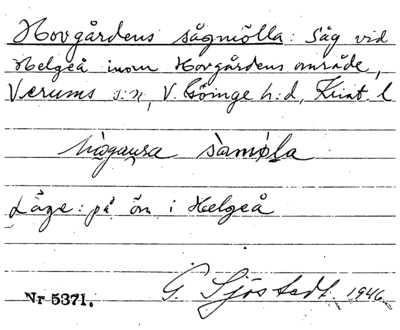 Hovgårdens sågmölla: Såg vid
Helgeå inom Hovgårdens område,
Verums s:n, V. Göinge h:d, Krist. l
sàmǿla
Läge: på ön i Helgeå
G. Sjöstedt. 1946
Nr 5371.